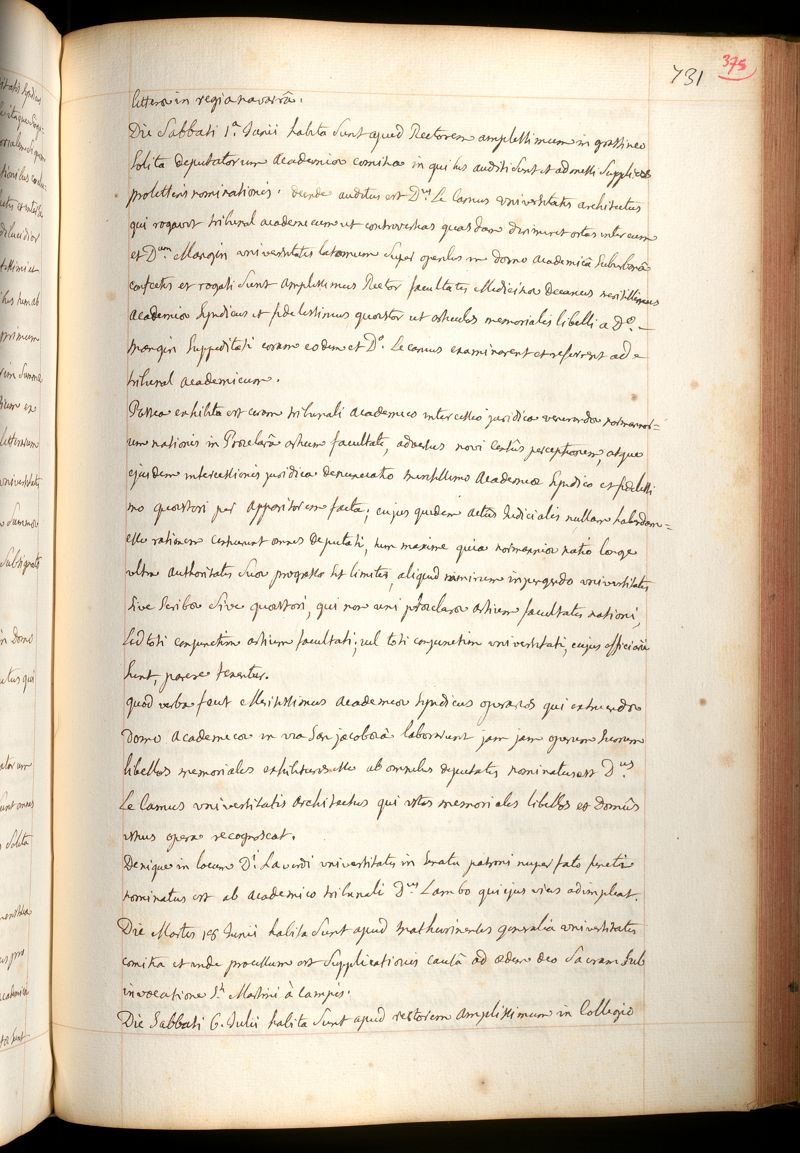 731
375
litteras in regia navarrâ.
Die Sabbati 1.ª Junii habita sunt apud Rectorem amplissimum in grassineo
solita deputatorum academiæ comitia in quibus auditi sunt et admissi supplices
pro litteris nominationis. deinde auditus est D.us Le Camus universitatis architectus
qui rogavit tribunal academicum ut controversias quasdam dirimeret ortas inter eum
et D.um Mangin universitatis latomum super operibus in domo academicâ suburbanâ
confectis et rogati sunt amplissimus Rector facultatis Medicinæ Decanus meritissimus
academiæ syndicus et fidelissimus quæstor ut articulos memorialis libelli a D.o
Mangin suppeditati coram eodem et D.o Le Camus examinarent et referrent ad
tribunal academicum.
Postea exhibita est coram tribunali academico intercessio juridica venerandæ normannor=
um nationis in Præclarâ artium facultate, adversus novi censûs perceptorem, atque
ejusdem intercessionis juridica denunciatio meritissimo academiæ syndico et fidelissi
mo quæstori per apparitorem facta; cujus quidem actus judicialis nullam habendam=
esse rationem censuerunt omnes deputati, tum maxime quia normannica natio longe
ultra authoritatis suæ progressa sit limites, aliquid nimirum injungendo universitatis
sive scribæ sive quæstori, qui non uni præclaræ artium facultatis nationi,
sed toti conjunctim artium facultati, vel toti conjunctim universitati, cujus officiarii
sunt, parere tenentur.
quod verba fecit Meritissimus academiæ syndicus operarios qui extruendæ
domo academicæ in via San jacobæâ laborarunt jam jam operum suorum
libellos memoriales exhibituros esse ab omnibus deputatis nominatus est D.us
Le Camus universitatis architectus qui istos memoriales libellos et domûs
istius opera recognoscat.
Denique in locum D.i Laverdi universitatis in senatu patroni nuper fato functi
nominatus est ab academico tribunali D.us Lambo qui ejus vices adimpleat.
Die Martis 18 Junii habita sunt apud mathurinenses generalia universitatis
comitia et inde processum est supplicationis causâ ad ædem deo sacram sub
invocatione S.ti Martini à campis.
Die Sabbati 6. Julii habita sunt apud rectorem amplissimum in Collegio